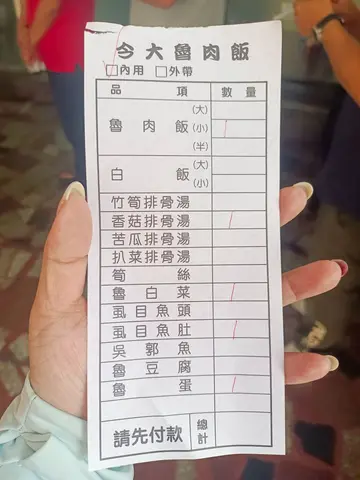 今大魯肉飯
☑內用 □外帶
品項 數量
魯肉飯 (大)
(小) /
(半)
白飯 (大)
(小)
竹筍排骨湯
香菇排骨湯 /
苦瓜排骨湯
扒菜排骨湯
筍絲
魯白菜 /
虱目魚頭
虱目魚肚 /
吳郭魚
魯豆腐
魯蛋 /
請先付款 總計